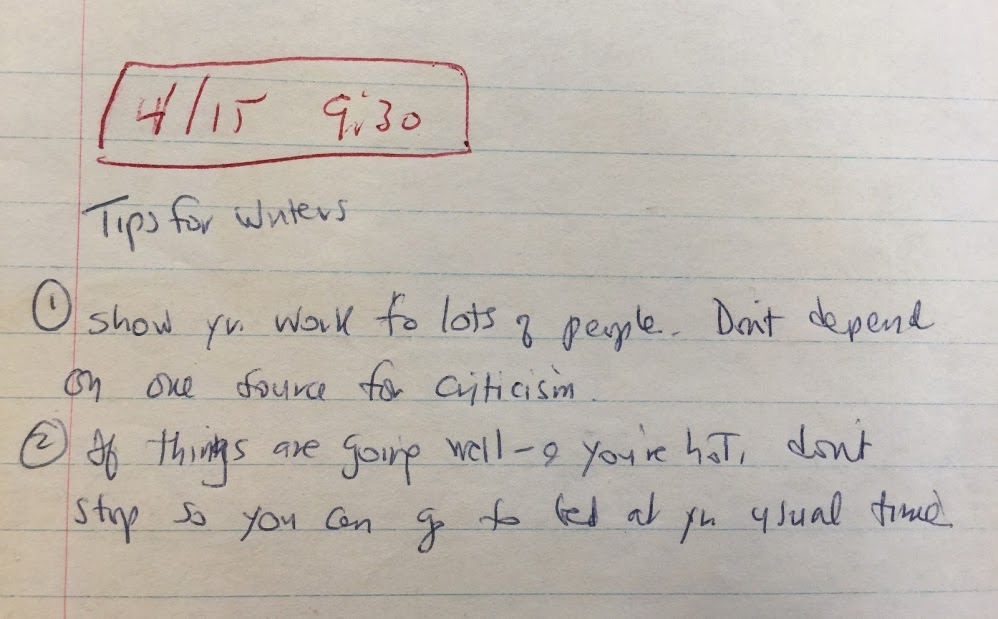 4/15 9:30
Tips for Writers
① Show yr. work to lots of people. Don't depend
on one source for criticism.
② If things are going well - & you're hot, don't
stop so you can go to bed at yr usual time